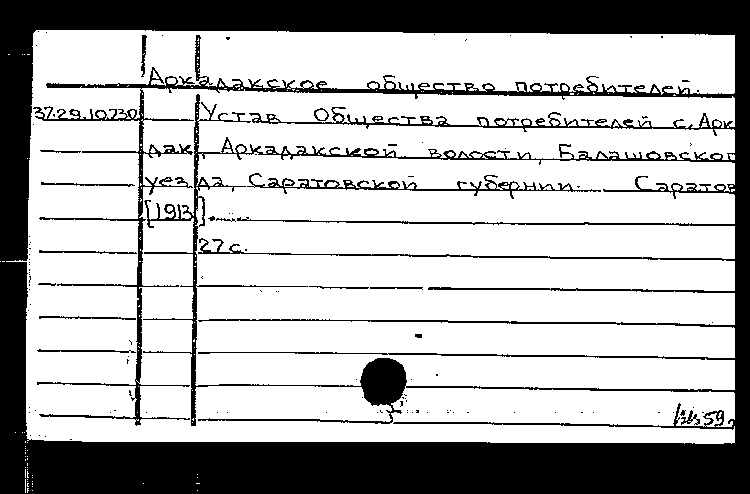 Аркадакское общество потребителей.
37.29.10.730 Устав Общества потребителей с. Арк
дак, Аркадакской волости, Балашовског
уезда, Саратовской губернии. Саратов
[1913].
27 с.